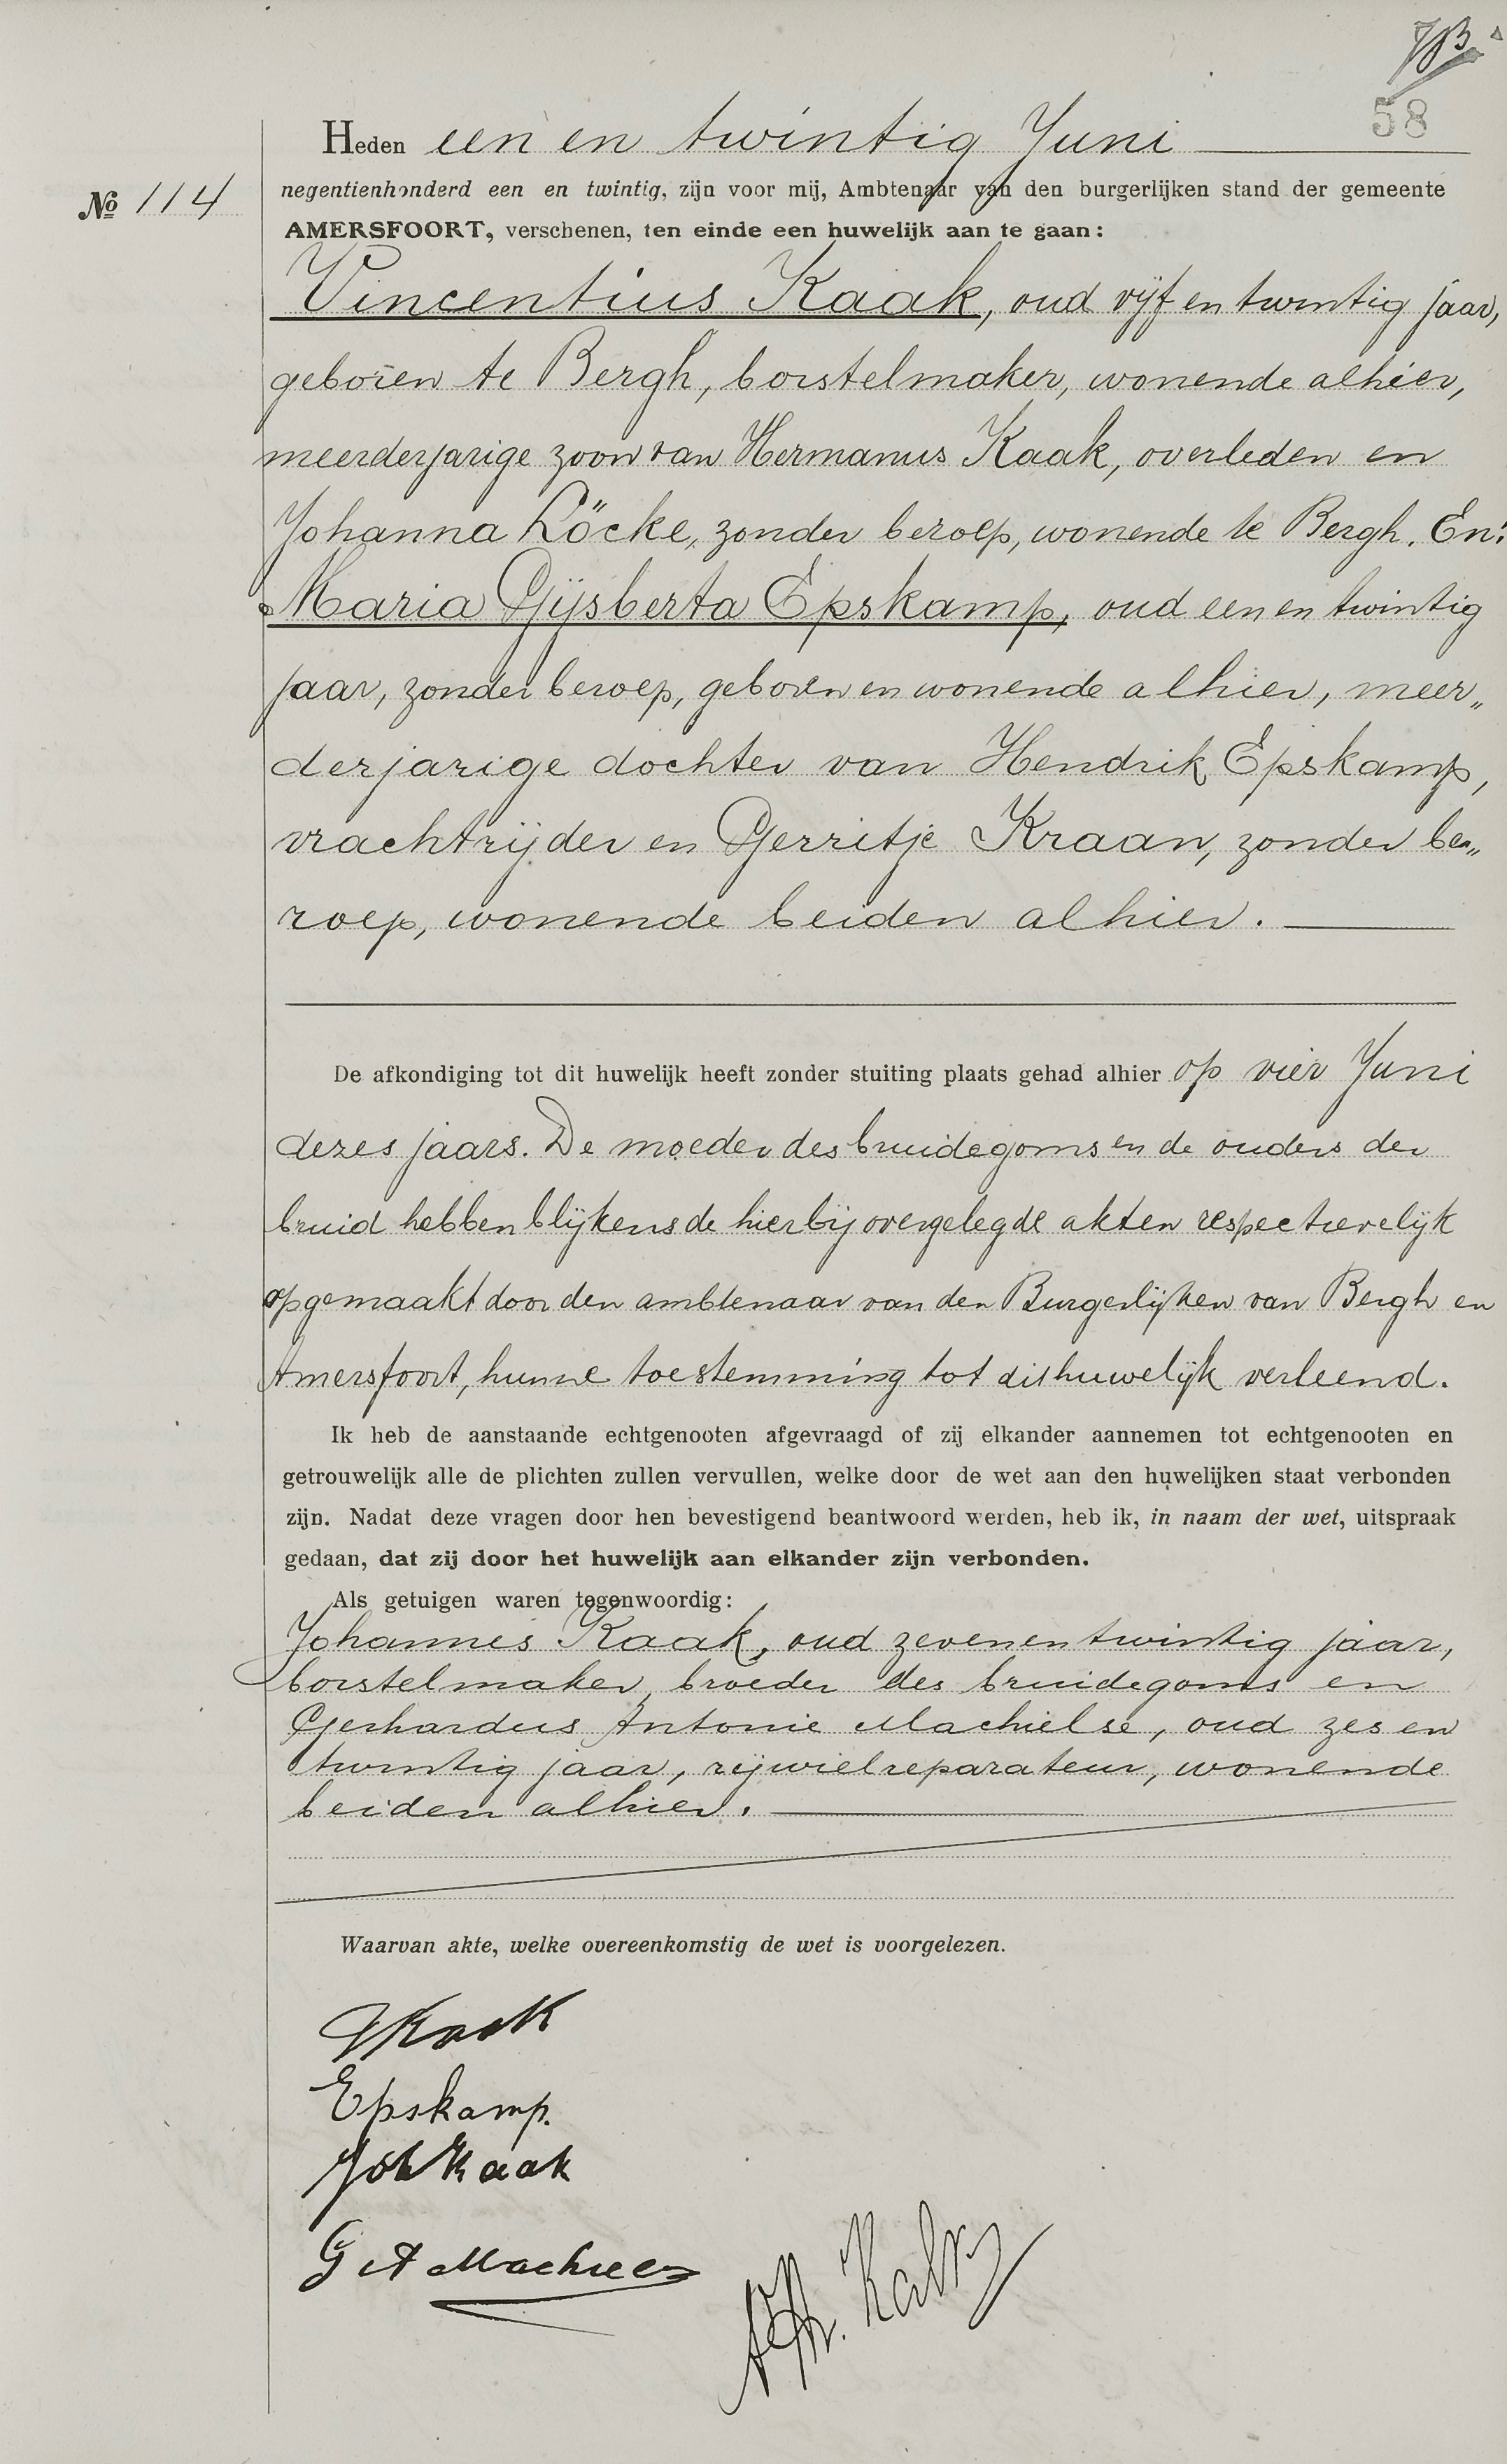 58
Heden een en twintig Juni
No 114
negentienhonderd een en twintig, zijn voor mij, Ambtenaar van den burgerlijken stand der gemeente
AMERSFOORT, verschenen, ten einde een huwelijk aan te gaan:
Vincentius Kaak, oud vijf en twintig jaar,
geboren te Bergh, borstelmaker, wonende alhier,
meerderjarige zoon van Hermanus Kaak, overleden en
Johanna Löcke, zonder beroep, wonende te Bergh. En:
Maria Gijsberta Epskamp, oud een en twintig
jaar, zonder beroep, geboren en wonende alhier, meer„
derjarige dochter van Hendrik Epskamp,
vrachtrijder en Gerritje Kraan, zonder be„
roep, wonende beiden alhier.
De afkondiging tot dit huwelijk heeft zonder stuiting plaats gehad alhier op vier Juni
dezes jaars. De moeder des bruidegoms en de ouders der
bruid hebben blijkens de hierbij overgelegde akten respectievelijk
opgemaakt door den ambtenaar van den Burgerlijken van Bergh en
Amersfoort, hunne toestemming tot dit huwelijk verleend.
Ik heb de aanstaande echtgenooten afgevraagd of zij elkander aannemen tot echtgenooten en
getrouwelijk alle de plichten zullen vervullen, welke door de wet aan den huwelijken staat verbonden
zijn. Nadat deze vragen door hen bevestigend beantwoord werden, heb ik, in naam der wet, uitspraak
gedaan, dat zij door het huwelijk aan elkander zijn verbonden.
Als getuigen waren tegenwoordig:
Johannes Kaak, oud zeven en twintig jaar,
borstelmaker, broeder des bruidegoms en
Gerhardus Antonie Machielse, oud zes en
twintig jaar, rijwielreparateur, wonende
beiden alhier.
Waarvan akte, welke overeenkomstig de wet is voorgelezen.
VKaak
Epskamp.
Joh Kaak
G A Machielse